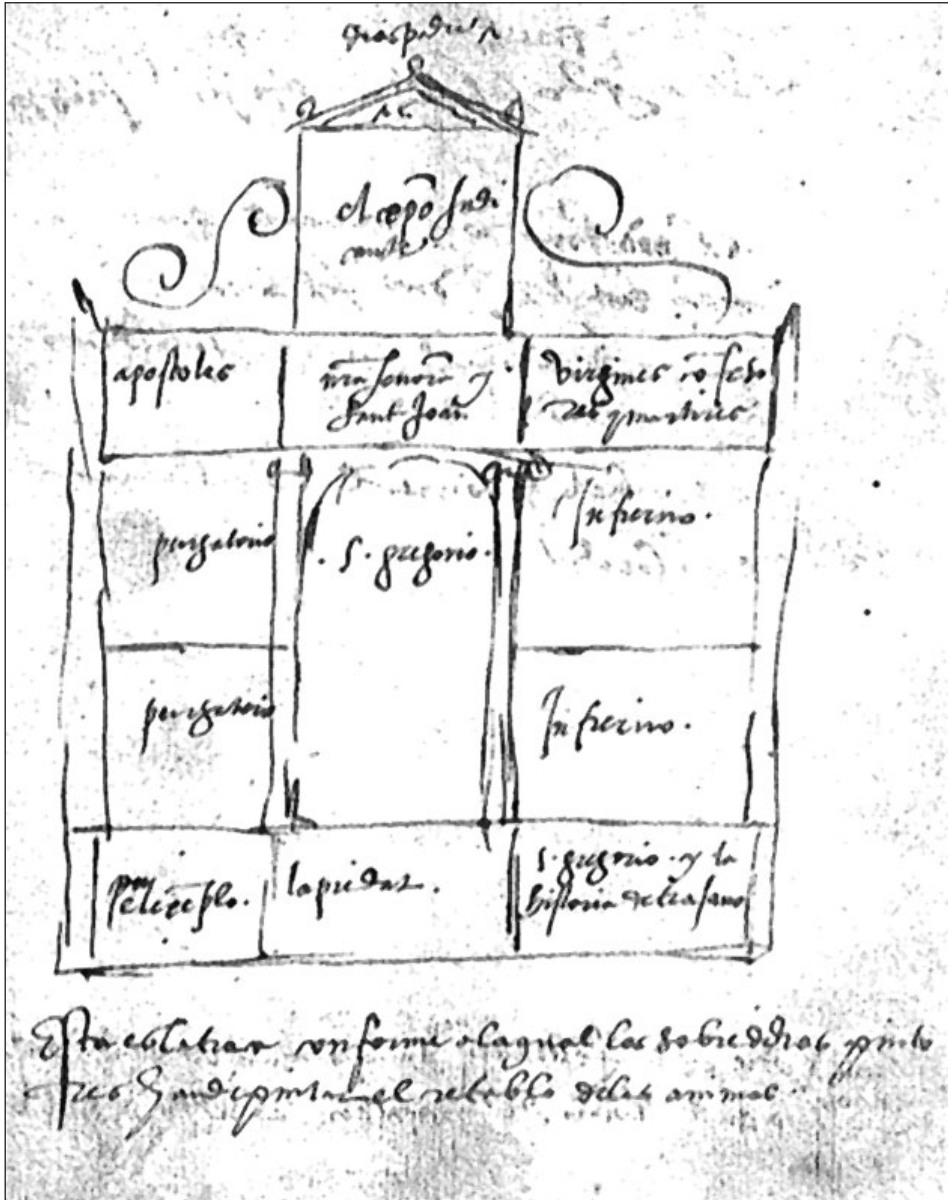 dios padre
el xpō Judi
cante
apostoles
nr̄a señora y
Sant Joan
virgines cō feso
res y martires
purgatorio
. S. gregorio.
Infierno.
purgatorio
Infierno.
la piedat.
S. gregorio. y la
historia de trajano
Esta es la traza conforme a la qual los sobredichos pinto
res han de pintar el retablo de las animas